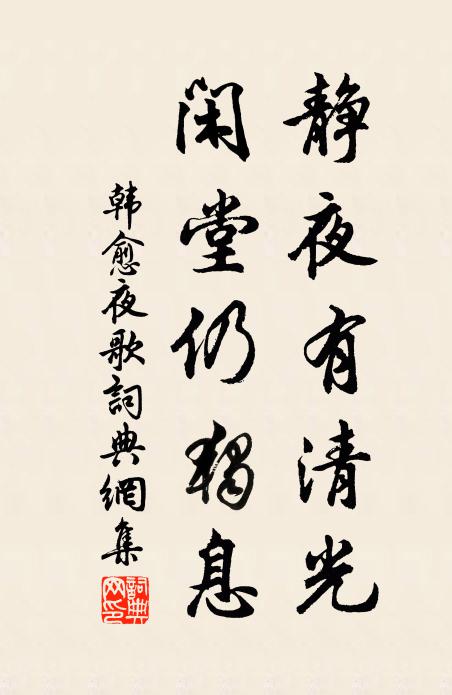 静夜有清光
闲堂仍獨息
韩愈夜歌詞典網集
詞典网印